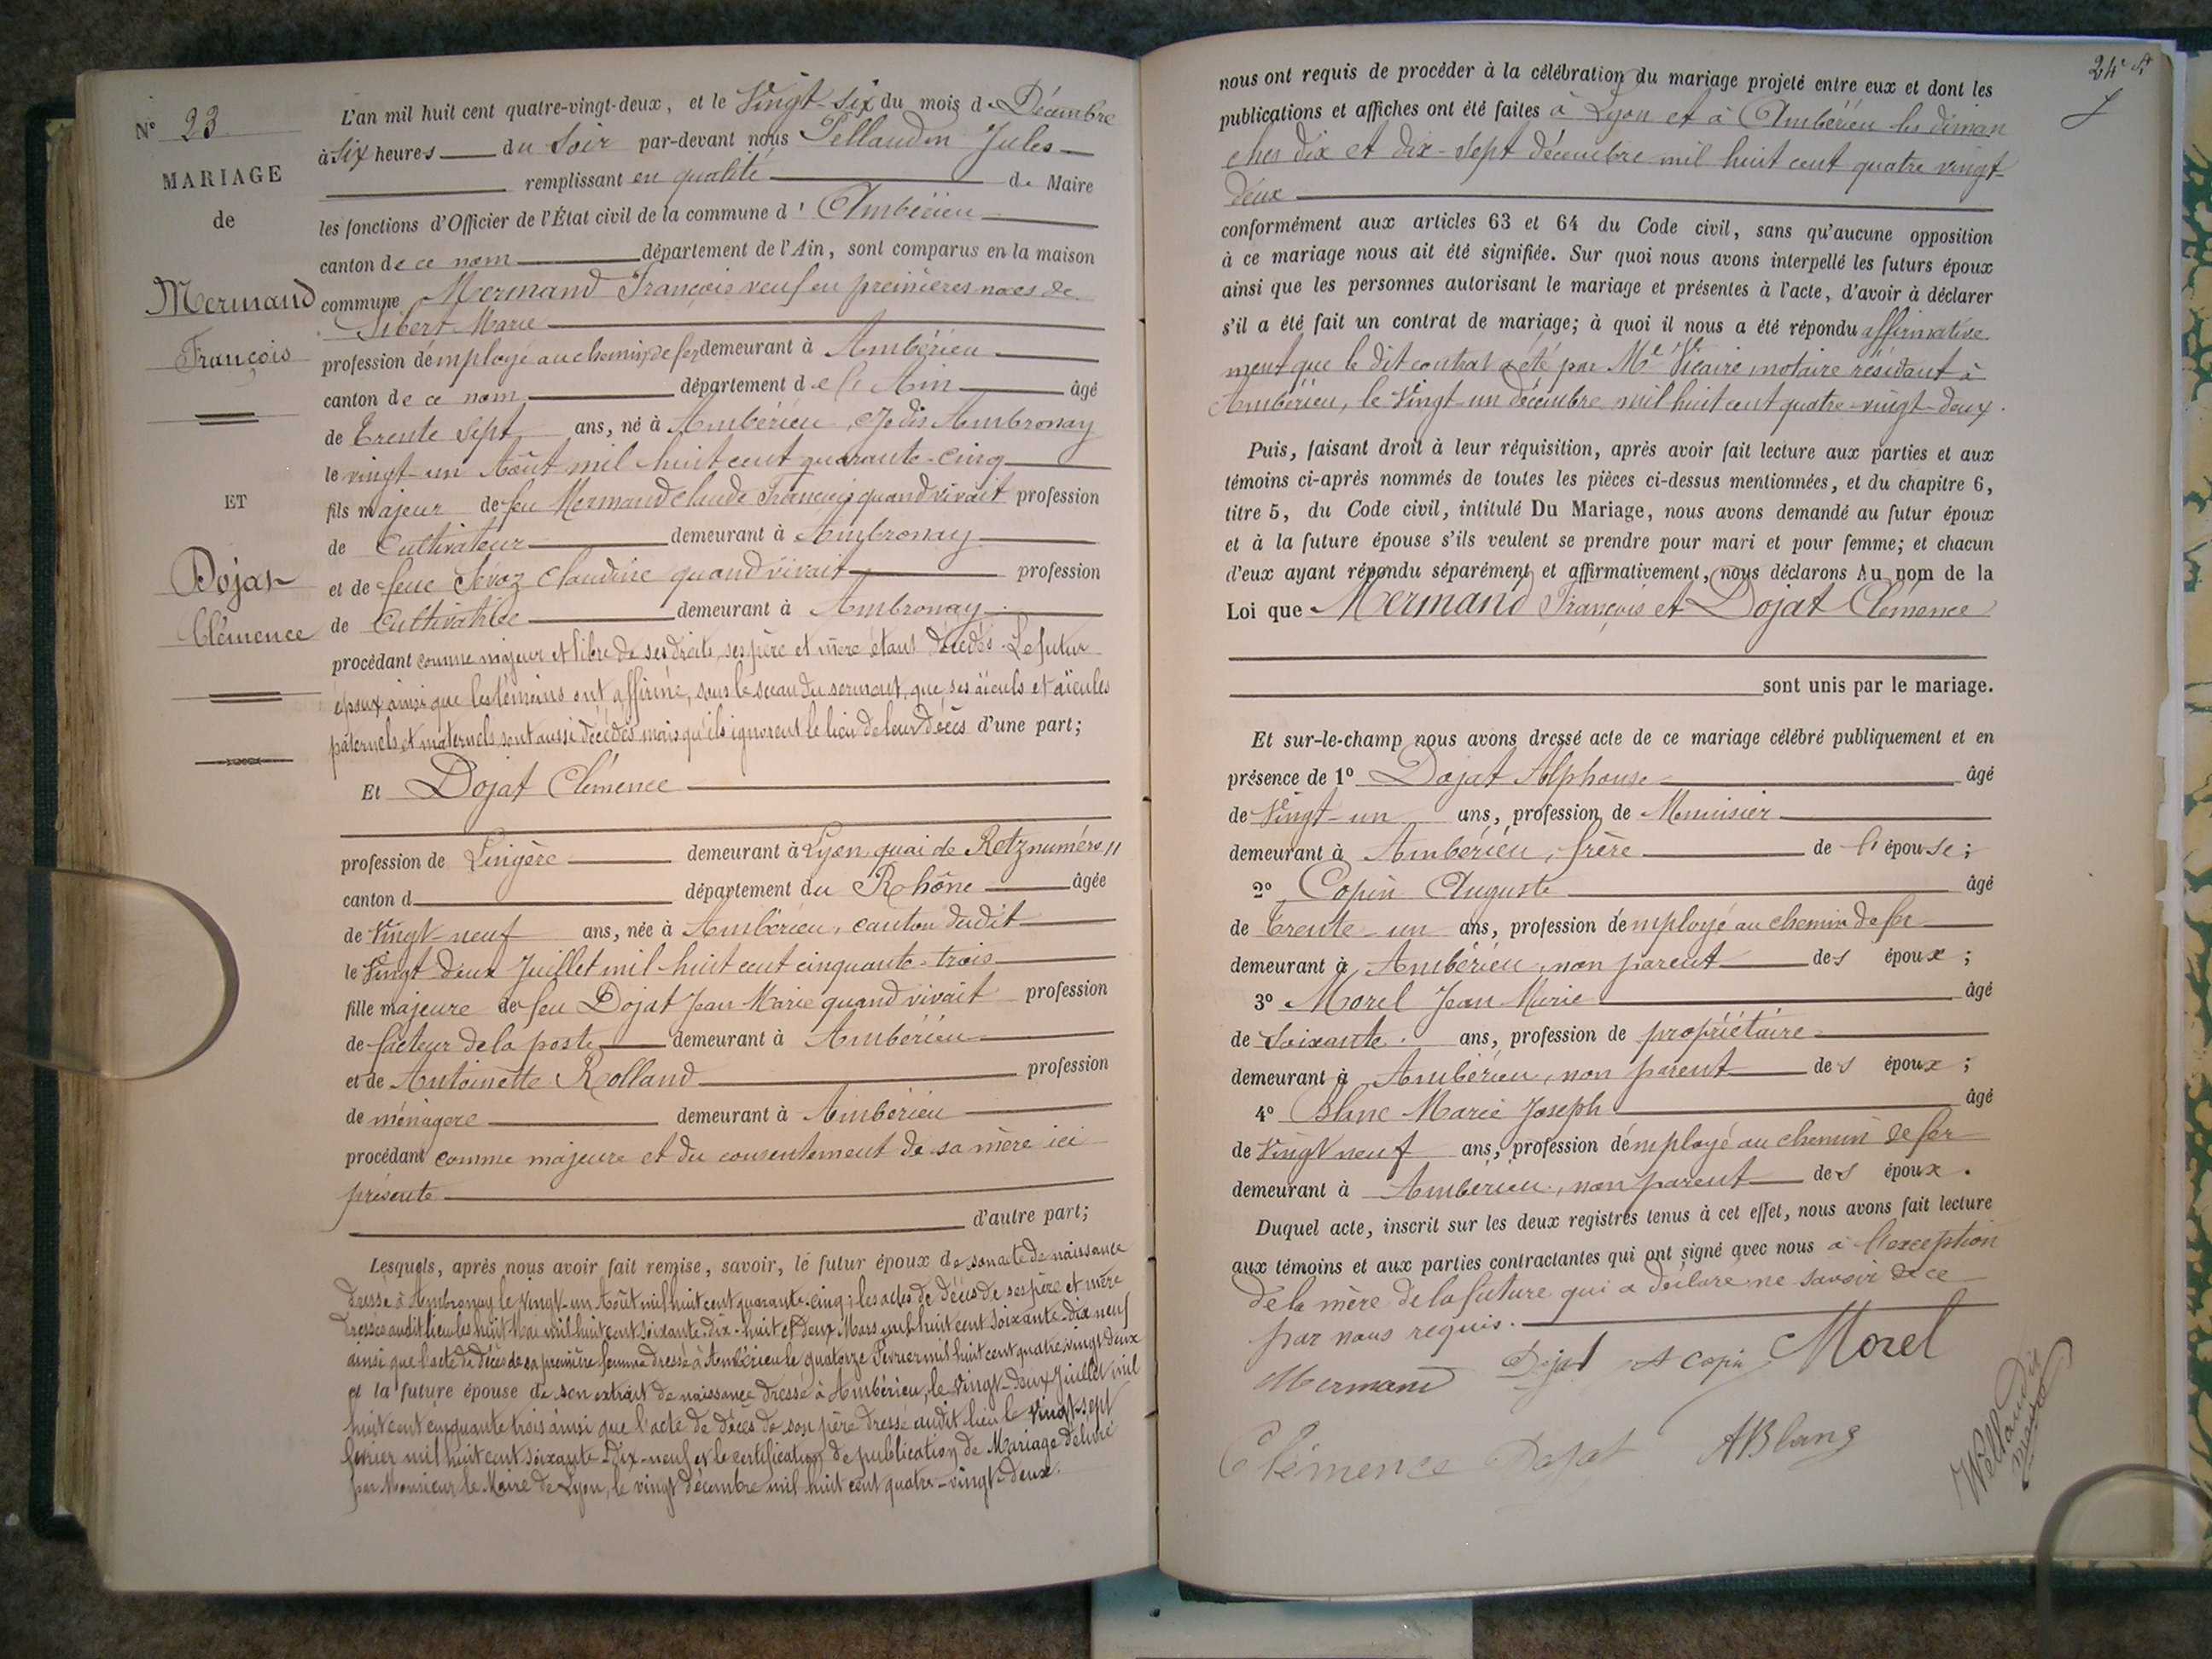 N° 23
MARIAGE
de
Mermand
François
ET
Dojat
Clémence
L'an mil huit cent quatre-vingt-deux, et le Vingt-six du mois de Décembre
à Six heures du Soir par-devant nous Pellaudin Jules
remplissant en qualité de Maire
les fonctions d'Officier de l'État civil de la commune d'Ambérieu
canton de ce nom département de l'Ain, sont comparus en la maison
commune Mermand François veuf en premières noces de
Sibert Marie
profession d'employé au chemin de fer demeurant à Ambérieu
canton de ce nom département de l'Ain âgé
de Trente Sept ans, né à Ambérieu Ambronay
le vingt-un Août mil huit cent quarante-cinq
fils majeur de feu Mermand Claude François quand vivait profession
de Cultivateur demeurant à Ambronay
et de feue Claudine quand vivait profession
de Cultivatrice demeurant à Ambronay
procédant comme majeur et libre de ses droits, ses père et mère étant décédés. Le futur
époux ainsi que les témoins ont affirmé, sous le sceau du serment, que ses aïeuls et aïeules
paternels et maternels sont aussi décédés mais qu'ils ignorent le lieu de leur décès d'une part;
Et Dojat Clémence
profession de Lingère demeurant à Lyon quai de Retz numéro 11
canton d département du Rhône âgée
de Vingt-neuf ans, née à Ambérieu, canton dudit
le Vingt deux Juillet mil huit cent cinquante-trois
fille majeure de feu Dojat Jean Marie quand vivait profession
de facteur de la poste demeurant à Ambérieu
et de Antoinette Rolland profession
de ménagère demeurant à Ambérieu
procédant comme majeure et du consentement de sa mère ici
présente
d'autre part;
Lesquels, après nous avoir fait remise, savoir, le futur époux de son acte de naissance
dressé à Ambronay le vingt-un Août mil huit cent quarante-cinq; les actes de décès de ses père et mère
dressés audit lieu les huit Mai mil huit cent soixante-dix-huit et deux Mars mil huit cent soixante-dix neuf
ainsi que l'acte de décès de sa première femme dressé à Ambérieu le quatorze Février mil huit cent quatre-vingt-deux
et la future épouse de son extrait de naissance dressé à Ambérieu, le vingt-deux Juillet mil
huit cent cinquante trois ainsi que l'acte de décès de son père dressé audit lieu le vingt-sept
février mil huit cent soixante-Dix-neuf et le certification de publication de Mariage délivré
par Monsieur le Maire de Lyon, le vingt décembre mil huit cent quatre-vingt-deux.
24
nous ont requis de procéder à la célébration du mariage projeté entre eux et dont les
publications et affiches ont été faites à Lyon et à Ambérieu les diman
ches dix et dix-sept décembre mil huit cent quatre vingt-
deux
conformément aux articles 63 et 64 du Code civil, sans qu'aucune opposition
à ce mariage nous ait été signifiée. Sur quoi nous avons interpellé les futurs époux
ainsi que les personnes autorisant le mariage et présentes à l'acte, d'avoir à déclarer
s'il a été fait un contrat de mariage; à quoi il nous a été répondu affirmative
ment que le dit contrat a été par Me Vicaire notaire résidant à
Ambérieu, le Vingt-un décembre mil huit cent quatre-vingt-deux.
Puis, faisant droit à leur réquisition, après avoir fait lecture aux parties et aux
témoins ci-après nommés de toutes les pièces ci-dessus mentionnées, et du chapitre 6,
titre 5, du Code civil, intitulé Du Mariage, nous avons demandé au futur époux
et à la future épouse s'ils veulent se prendre pour mari et pour femme; et chacun
d'eux ayant répondu séparément et affirmativement, nous déclarons Au nom de la
Loi que Mermand François et Dojat Clémence
sont unis par le mariage.
Et sur-le-champ nous avons dressé acte de ce mariage célébré publiquement et en
présence de 1° Dojat Alphonse âgé
de Vingt-un ans, profession de Menuisier
demeurant à Ambérieu, frère de l'épouse;
2° Copin Auguste âgé
de Trente-un ans, profession d'employé au chemin de fer
demeurant à Ambérieu, non parent des époux;
3° Morel Jean Marie âgé
de Soixante ans, profession de propriétaire
demeurant à Ambérieu, non parent des époux;
4° Blanc Marie Joseph âgé
de Vingt neuf ans, profession d'employé au chemin de fer
demeurant à Ambérieu, non parent des époux.
Duquel acte, inscrit sur les deux registres tenus à cet effet, nous avons fait lecture
aux témoins et aux parties contractantes qui ont signé avec nous à l'exception
de la mère de la future qui a déclaré ne savoir de ce
par nous requis.
Mermand Dojat A Copin Morel
Clémence Dojat ABlanc